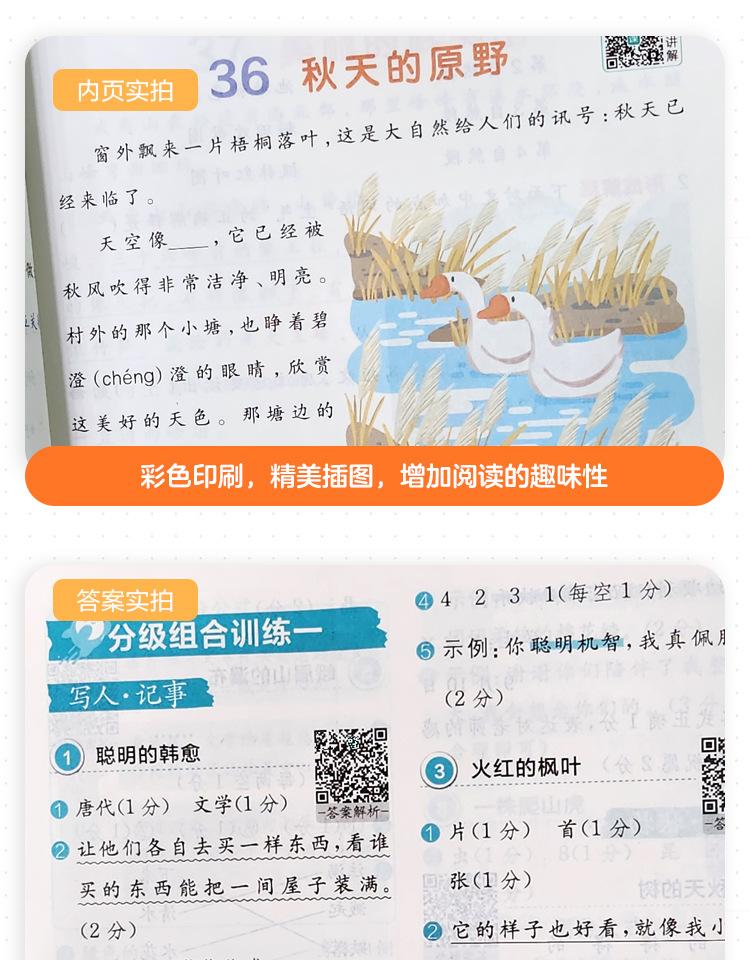 内页实拍
36 秋天的原野
讲解
窗外飘来一片梧桐落叶,这是大自然给人们的讯号:秋天已
经来临了。
天空像____,它已经被
秋风吹得非常洁净、明亮。
村外的那个小塘,也睁着碧
澄(chéng)澄的眼睛,欣赏
这美好的天色。那塘边的
彩色印刷，精美插图，增加阅读的趣味性
答案实拍
分级组合训练一
写人·记事
1 聪明的韩愈
答案解析
1 唐代(1分) 文学(1分)
2 让他们各自去买一样东西,看谁
买的东西能把一间屋子装满。
(2分)
4 4 2 3 1(每空1分)
5 示例:你聪明机智,我真佩服
(2分)
3 火红的枫叶
1 片(1分) 首(1分)
张(1分)
2 它的样子也好看,就像我小